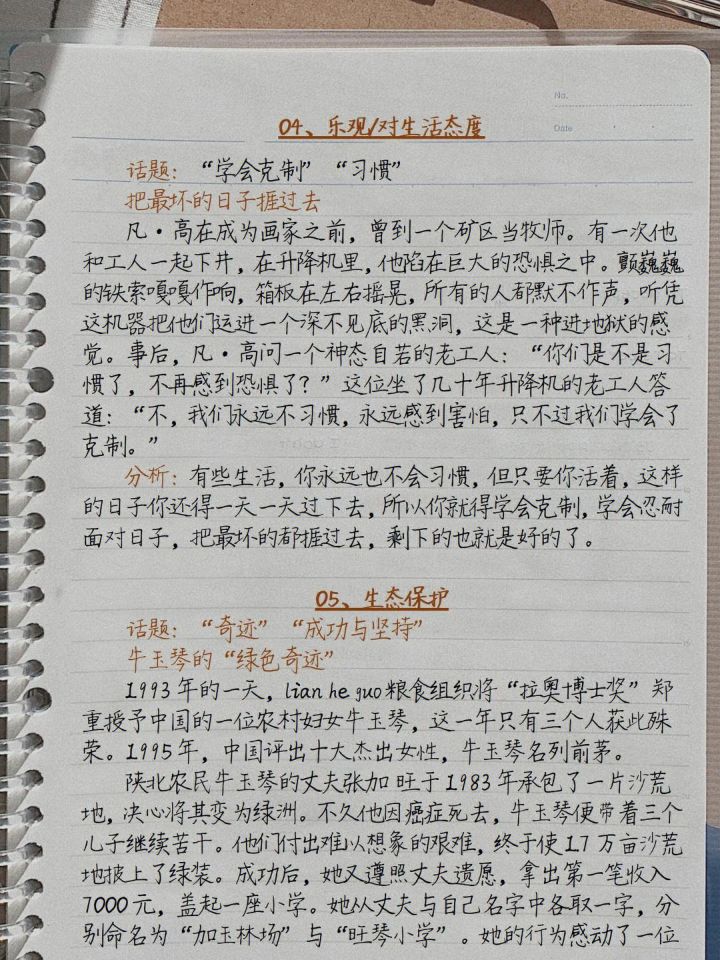 No.
Date
04、乐观/对生活态度
话题：“学会克制”“习惯”
把最坏的日子捱过去
凡·高在成为画家之前，曾到一个矿区当牧师。有一次他
和工人一起下井，在升降机里，他陷在巨大的恐惧之中。颤巍巍
的铁索嘎嘎作响，箱板在左右摇晃，所有的人都默不作声，听凭
这机器把他们运进一个深不见底的黑洞，这是一种进地狱的感
觉。事后，凡·高问一个神态自若的老工人：“你们是不是习
惯了，不再感到恐惧了？”这位坐了几十年升降机的老工人答
道：“不，我们永远不习惯，永远感到害怕，只不过我们学会了
克制。”
分析：有些生活，你永远也不会习惯，但只要你活着，这样
的日子你还得一天一天过下去，所以你就得学会克制，学会忍耐
面对日子，把最坏的都捱过去，剩下的也就是好的了。
05、生态保护
话题：“奇迹”“成功与坚持”
牛玉琴的“绿色奇迹”
1993年的一天，lian he guo粮食组织将“拉奥博士奖”郑
重授予中国的一位农村妇女牛玉琴，这一年只有三个人获此殊
荣。1995年，中国评出十大杰出女性，牛玉琴名列前茅。
陕北农民牛玉琴的丈夫张加旺于1983年承包了一片沙荒
地，决心将其变为绿洲。不久他因癌症死去，牛玉琴便带着三个
儿子继续苦干。他们付出难以想象的艰难，终于使1.7万亩沙荒
地披上了绿装。成功后，她又遵照丈夫遗愿，拿出第一笔收入
7000元，盖起一座小学。她从丈夫与自己名字中各取一字，分
别命名为“加玉林场”与“旺琴小学”。她的行为感动了一位